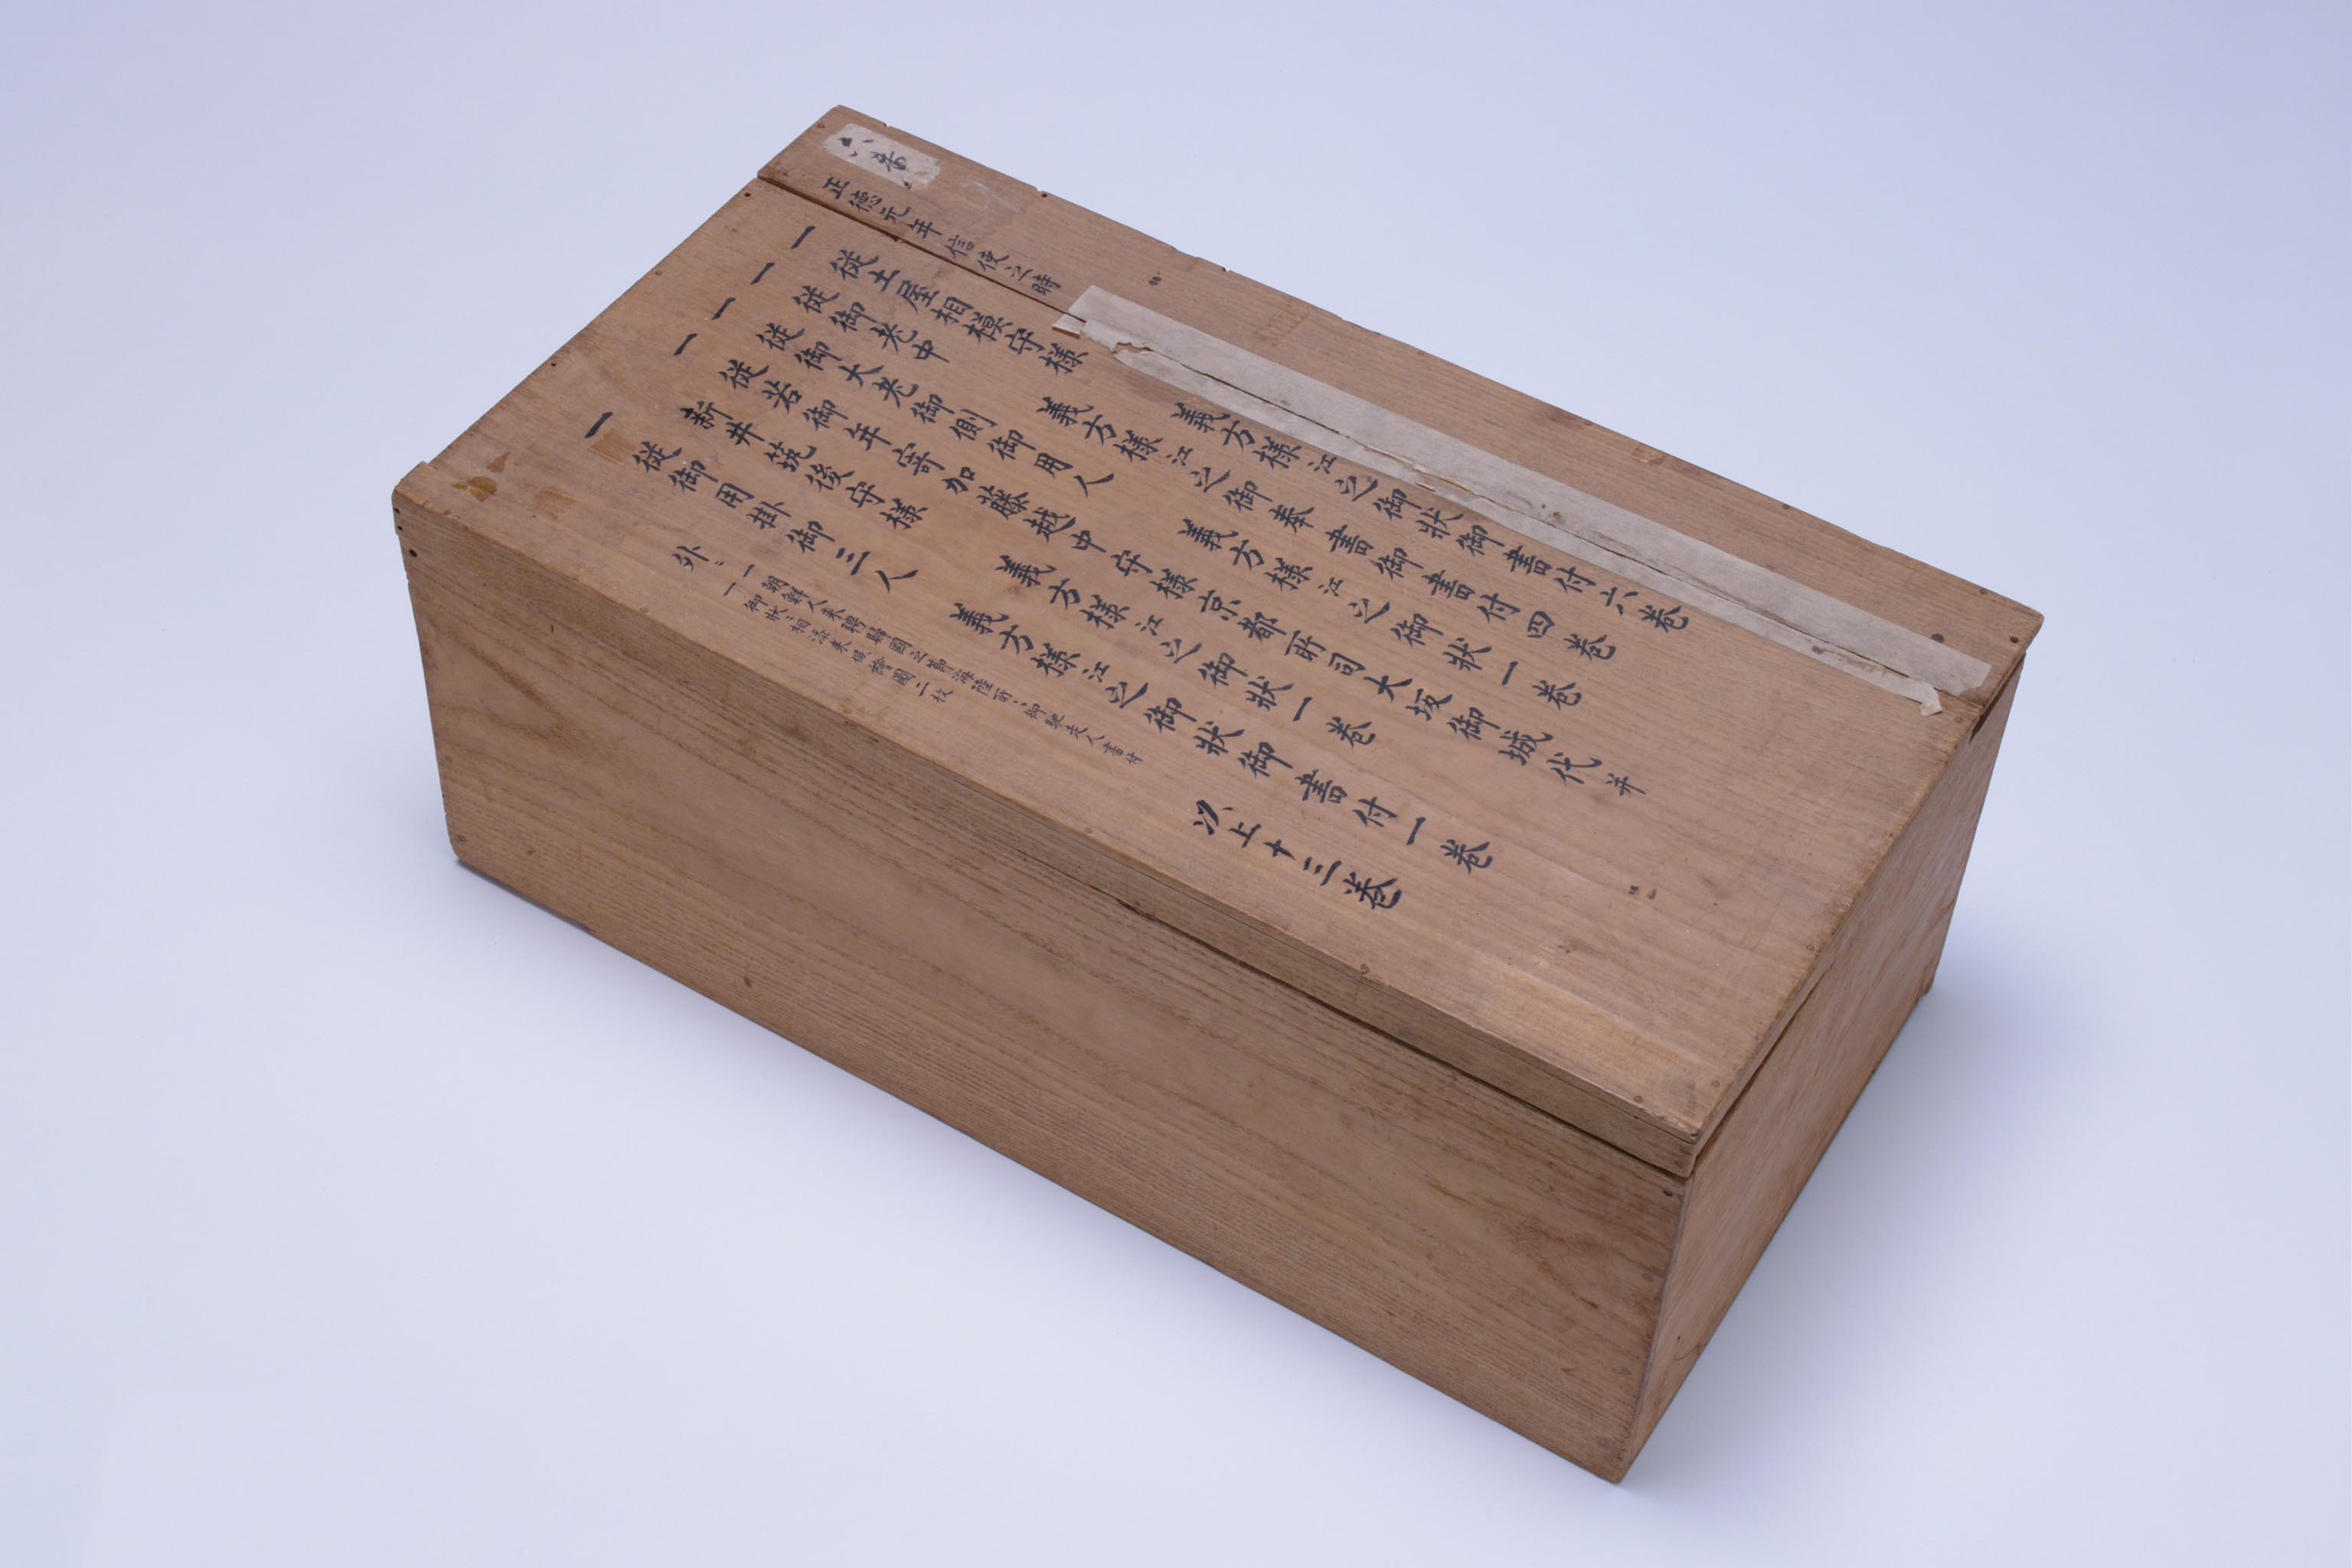 六番
正徳元年信使之時
一 従土屋相模守様 義方様江之御狀御書付六巻
一 従御老中 義方様江之御奉書御書付四巻
一 従御大老御側御用人 義方様江之御狀一巻
一 従若御年寄加藤越中守様京都所司大坂御城代并
新井筑後守様 義方様江之御狀一巻
一 従御用掛御三人 義方様江之御狀御書付一巻
外ニ 一朝鮮人来聘歸國之節海陸所々御馳走人書付
一御狀ニ相添来候繪圖二枚
以上十三巻